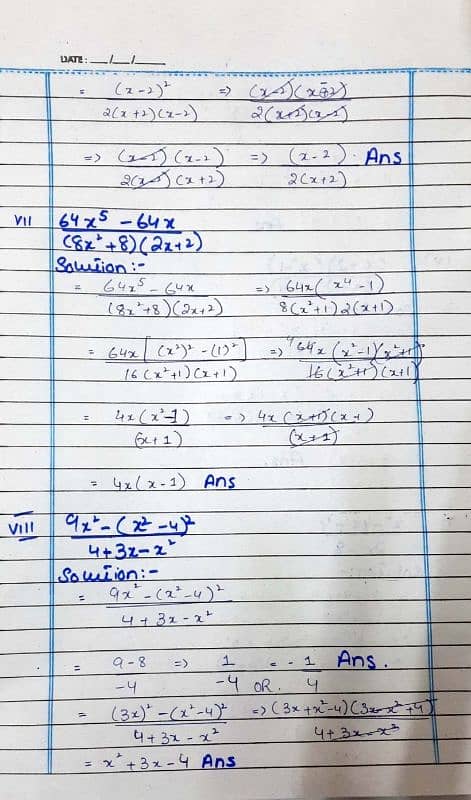 DATE: __/__/__
= (x-2)² / 2(x+2)(x-2) => (x-2)(x-2) / 2(x+2)(x-2)
=> (x-2)(x-2) / 2(x-2)(x+2) => (x-2) / 2(x+2) . Ans
VII 64x⁵ - 64x / (8x²+8)(2x+2)
Solution:-
= 64x⁵ - 64x / (8x²+8)(2x+2) => 64x(x⁴-1) / 8(x²+1)2(x+1)
= 64x[(x²)² - (1)² / 16(x²+1)(x+1) => ⁴64x(x²-1)(x²+1) / 16(x²+1)(x+1)
= 4x(x²-1) / (x+1) => 4x(x+1)(x-1) / (x+1)
= 4x(x-1) Ans
VIII 9x² - (x²-4)² / 4+3x-x²
Solution:-
= 9x² - (x²-4)² / 4+3x-x²
= 9-8 / -4 => 1 / -4 = - 1 / 4 Ans.
OR.
= (3x)² - (x²-4)² / 4+3x-x² => (3x+x²-4)(3x-x²+4) / 4+3x-x²
= x²+3x-4 Ans